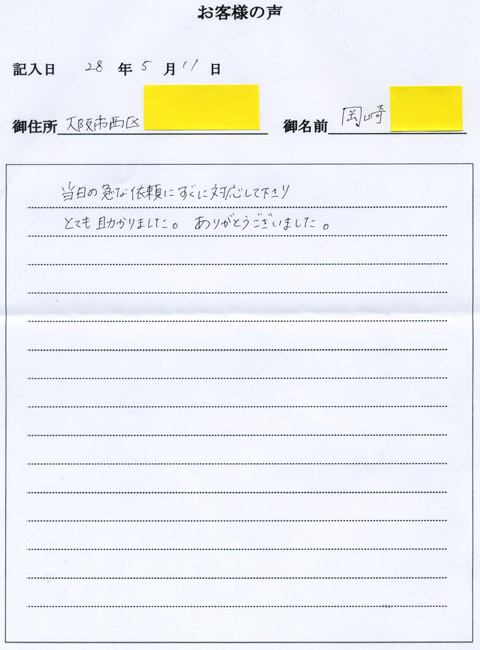 お客様の声
記入日 28 年 5 月 11 日
御住所 大阪市西区 御名前 岡崎
当日の急な依頼にすぐに対応して下さり
とても助かりました。ありがとうございました。